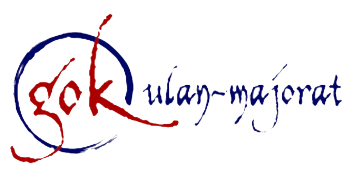 gok ulan-majorat